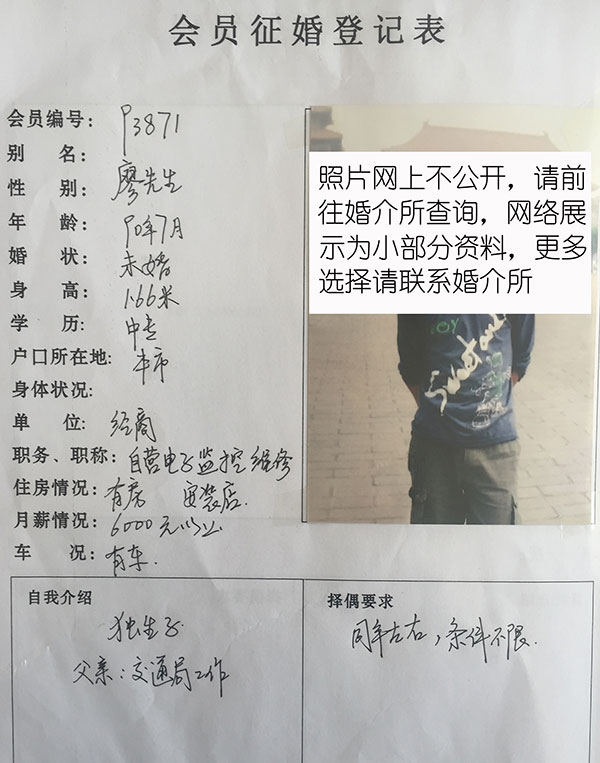 会员征婚登记表
会员编号: P3871
别 名:
性 别: 廖先生
年 龄: 90年7月
婚 状: 未婚
身 高: 1.66米
学 历: 中专
户口所在地: 本市
身体状况:
单 位: 经商
职务、职称: 自营电子监控维修
住房情况: 有房 安装店.
月薪情况: 6000元以上
车 况: 有车.
照片网上不公开，请前
往婚介所查询，网络展
示为小部分资料，更多
选择请联系婚介所
BOY
自我介绍
独生子
父亲：交通局工作
择偶要求
同年左右，条件不限.